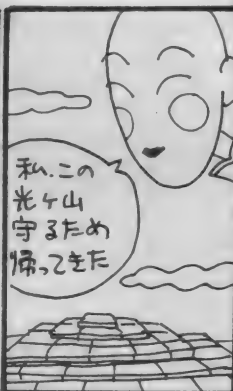 私、この
光ヶ山
守るため
帰ってきた